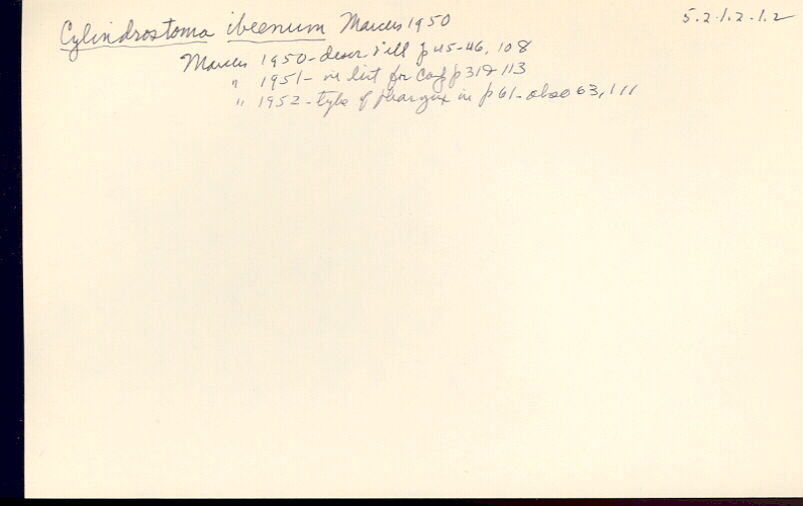 5.2.1.2.1.2
Cylindrostoma ibeenum Marcus 1950
Marcus 1950 - descr & ill p 45-46, 108
" 1951 - in list for p 113
" 1952 - type of pharynx in p 61 - also 63, 111